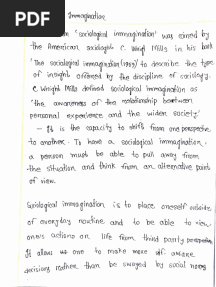 PDF
Immagination
'sociological immagination' was coined by
the American sociologist C. Wrigt Mills in his book
'The sociological immagination (1959)' to describe the type
of insight offerred by the discipline of sociology.
C Wright Mills defined sociological immagination as
"the awareness of the relationship between
personal experience and the wider society'
- It is the capacity to shift from one perspective
to another. To have a sociological immagination,
a person must be able to pull away from
the situation and think from an alternative point
of view.
Sociological immagination is to place oneself outside
of everyday routine and to be able to view
one's actions an life from third party perspective
It allows us one to make more aware
decisions rather than be swayed by social norms